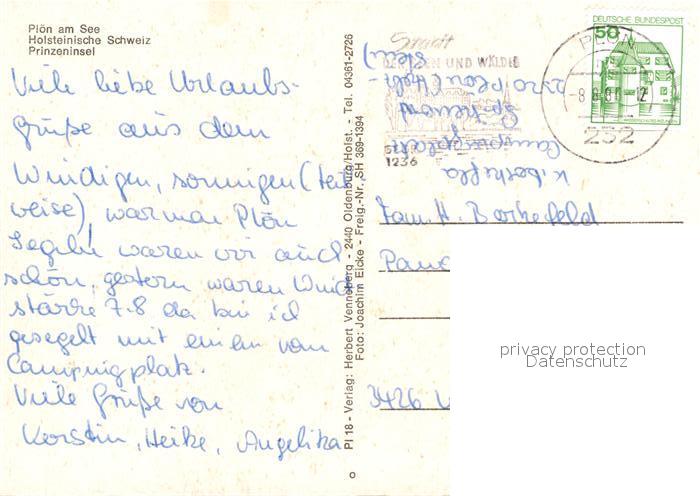 Plön am See
Holsteinische Schweiz
Prinzeninsel
Viele liebe Urlaubs-
grüße aus dem
Windigen, sonnigen (teil
weise), warmen Plön
Segeln waren wir auch
schön, gestern waren Wind
stärke 7-8 da bin ich
gesegelt mit einem vom
Campingplatz.
Viele Grüße von
Kerstin, Heike, Angelika
Pl 18 - Verlag: Herbert Venneberg - 2440 Oldenburg/Holst. - Tel. 04361-2726
Foto: Joachim Eicke - Freig.-Nr. SH 369-1394
UND WÄLDER
DEUTSCHE BUNDESPOST
50
PLÖN
-8.8. 12
232
1236
Campingplatz
2320 Plön (Hol-
stein)
Fam. H. Borkefeld
3426
privacy protection
Datenschutz